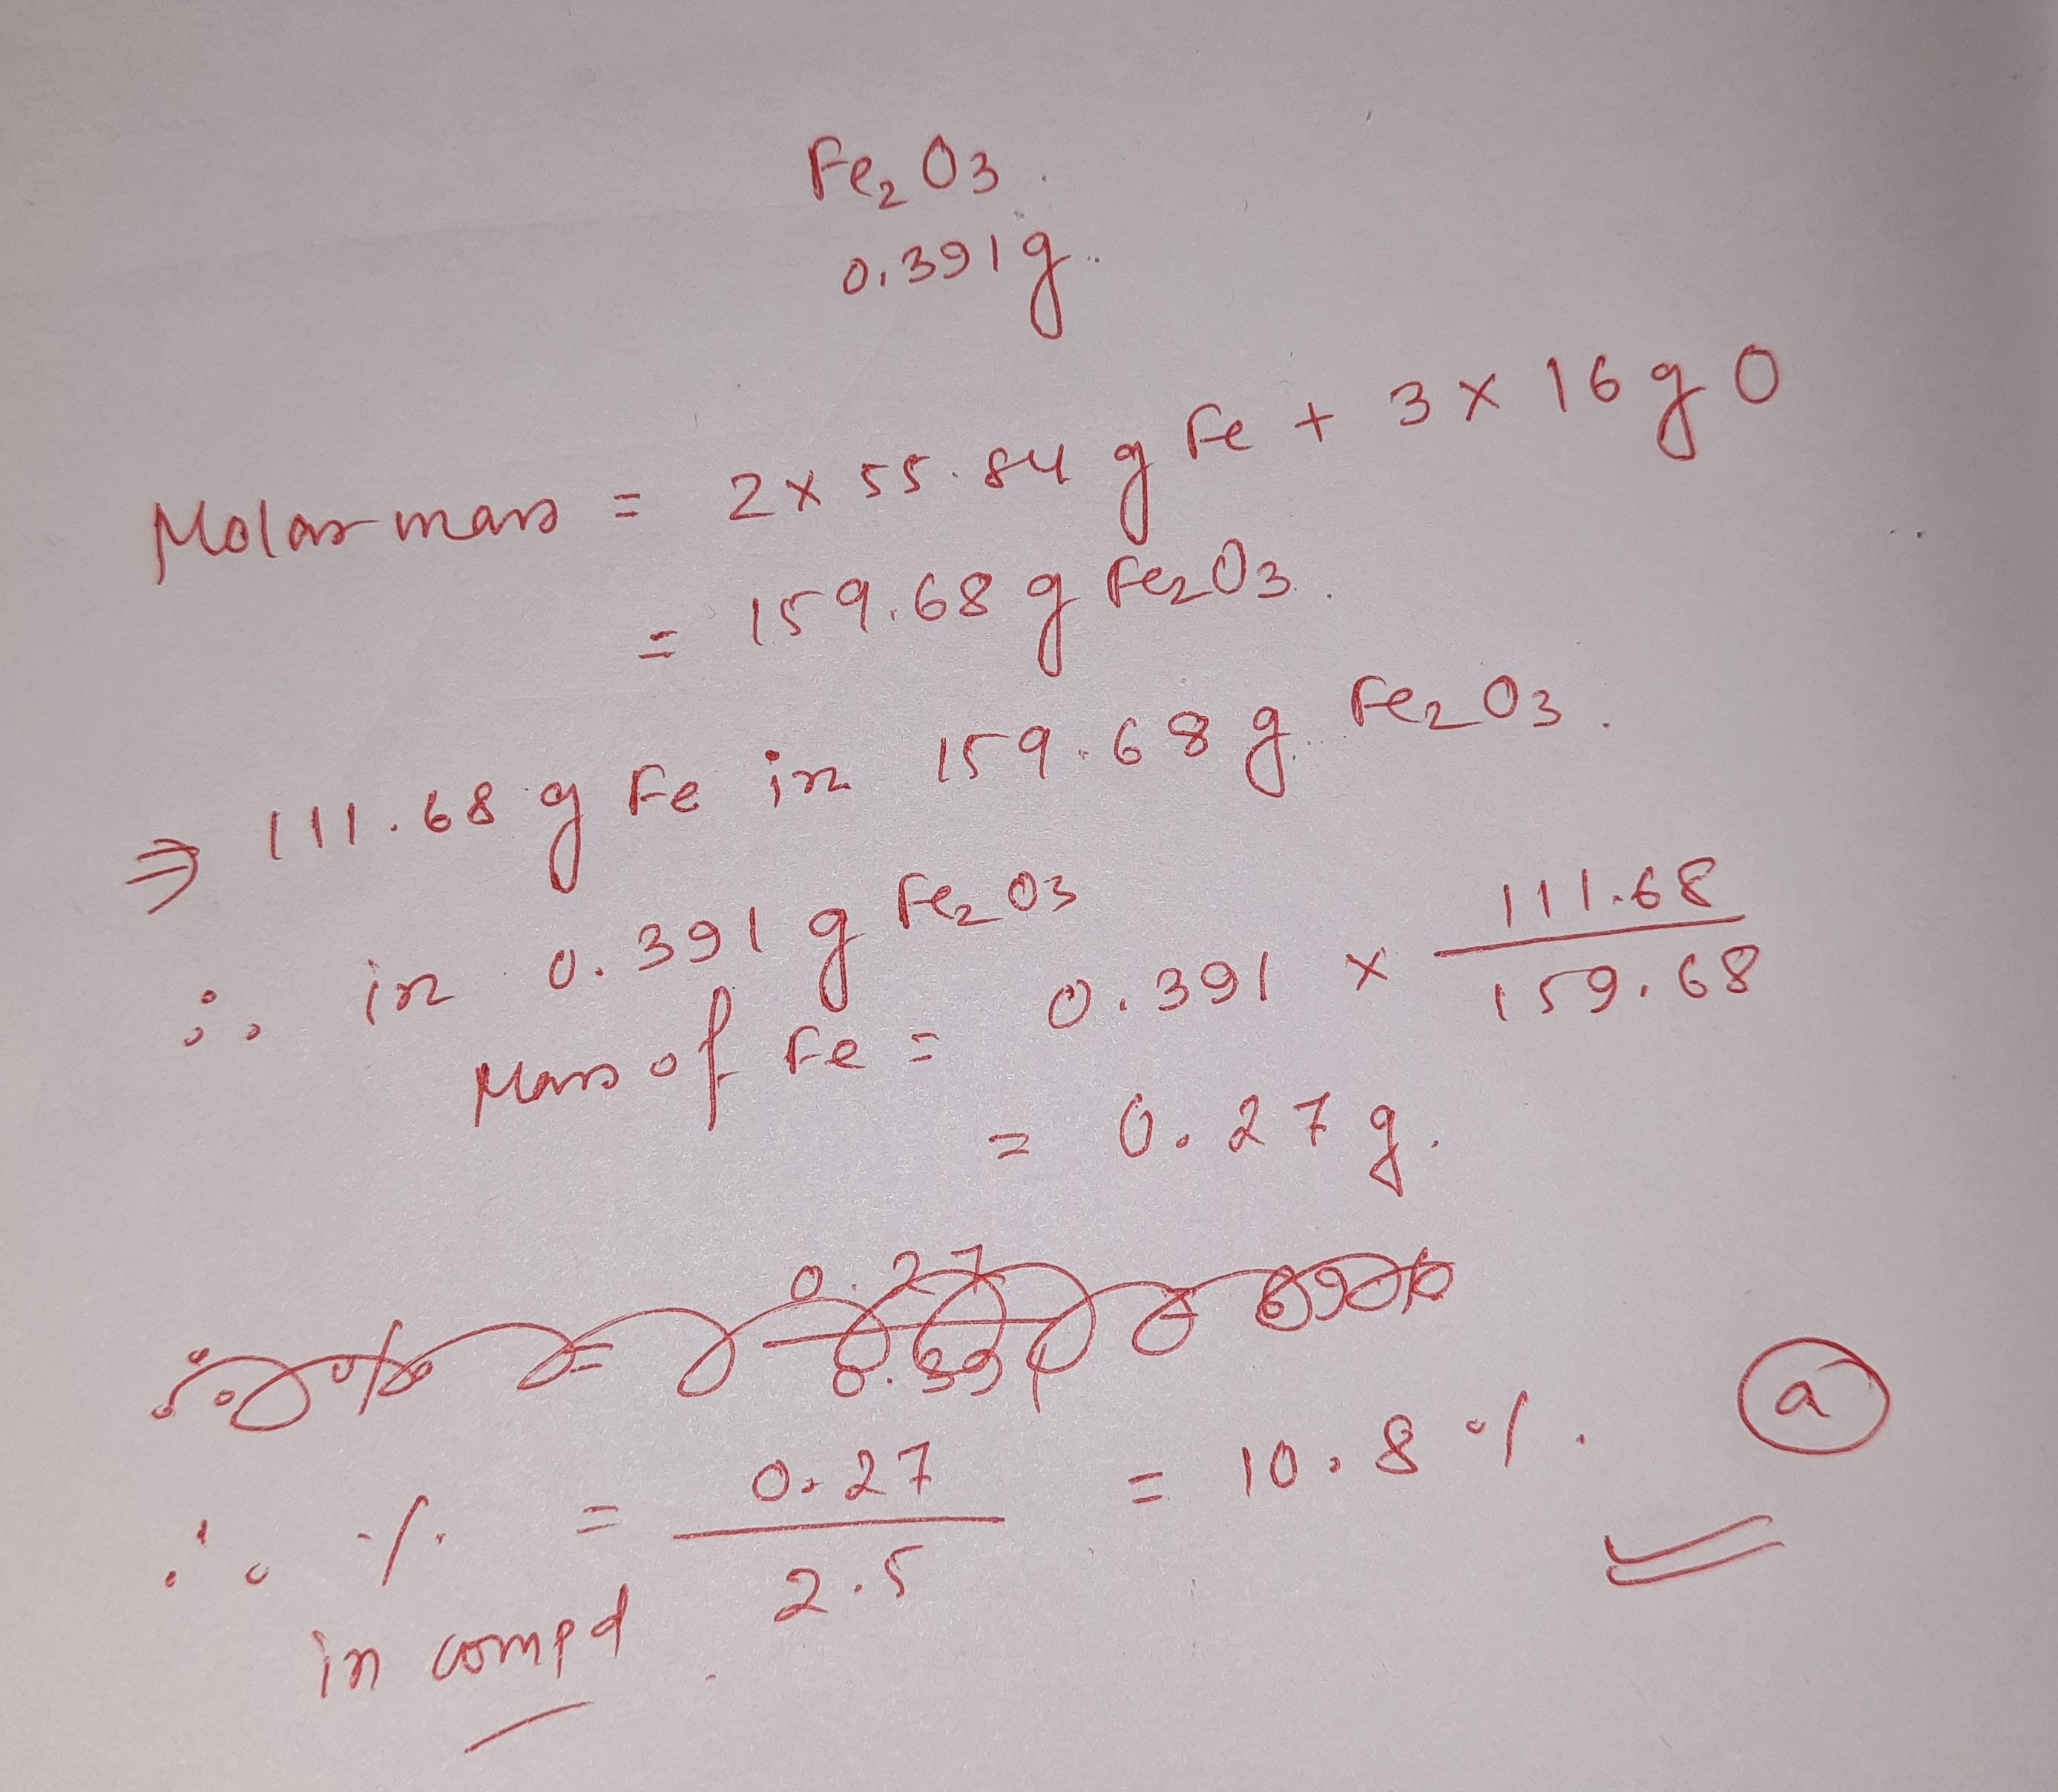 Fe₂O₃.
0.391g.
Molar mass = 2x 55.84 g Fe + 3 x 16 g O
= 159.68 g Fe₂O₃.
⇒ 111.68 g Fe in 159.68 g Fe₂O₃.
∴ in 0.391 g Fe₂O₃
Mass of Fe = 0.391 x 111.68
159.68
= 0.27 g.
0.27
∴ % =
(a)
∴ % = 0.27 = 10.8 %.
in compd 2.5